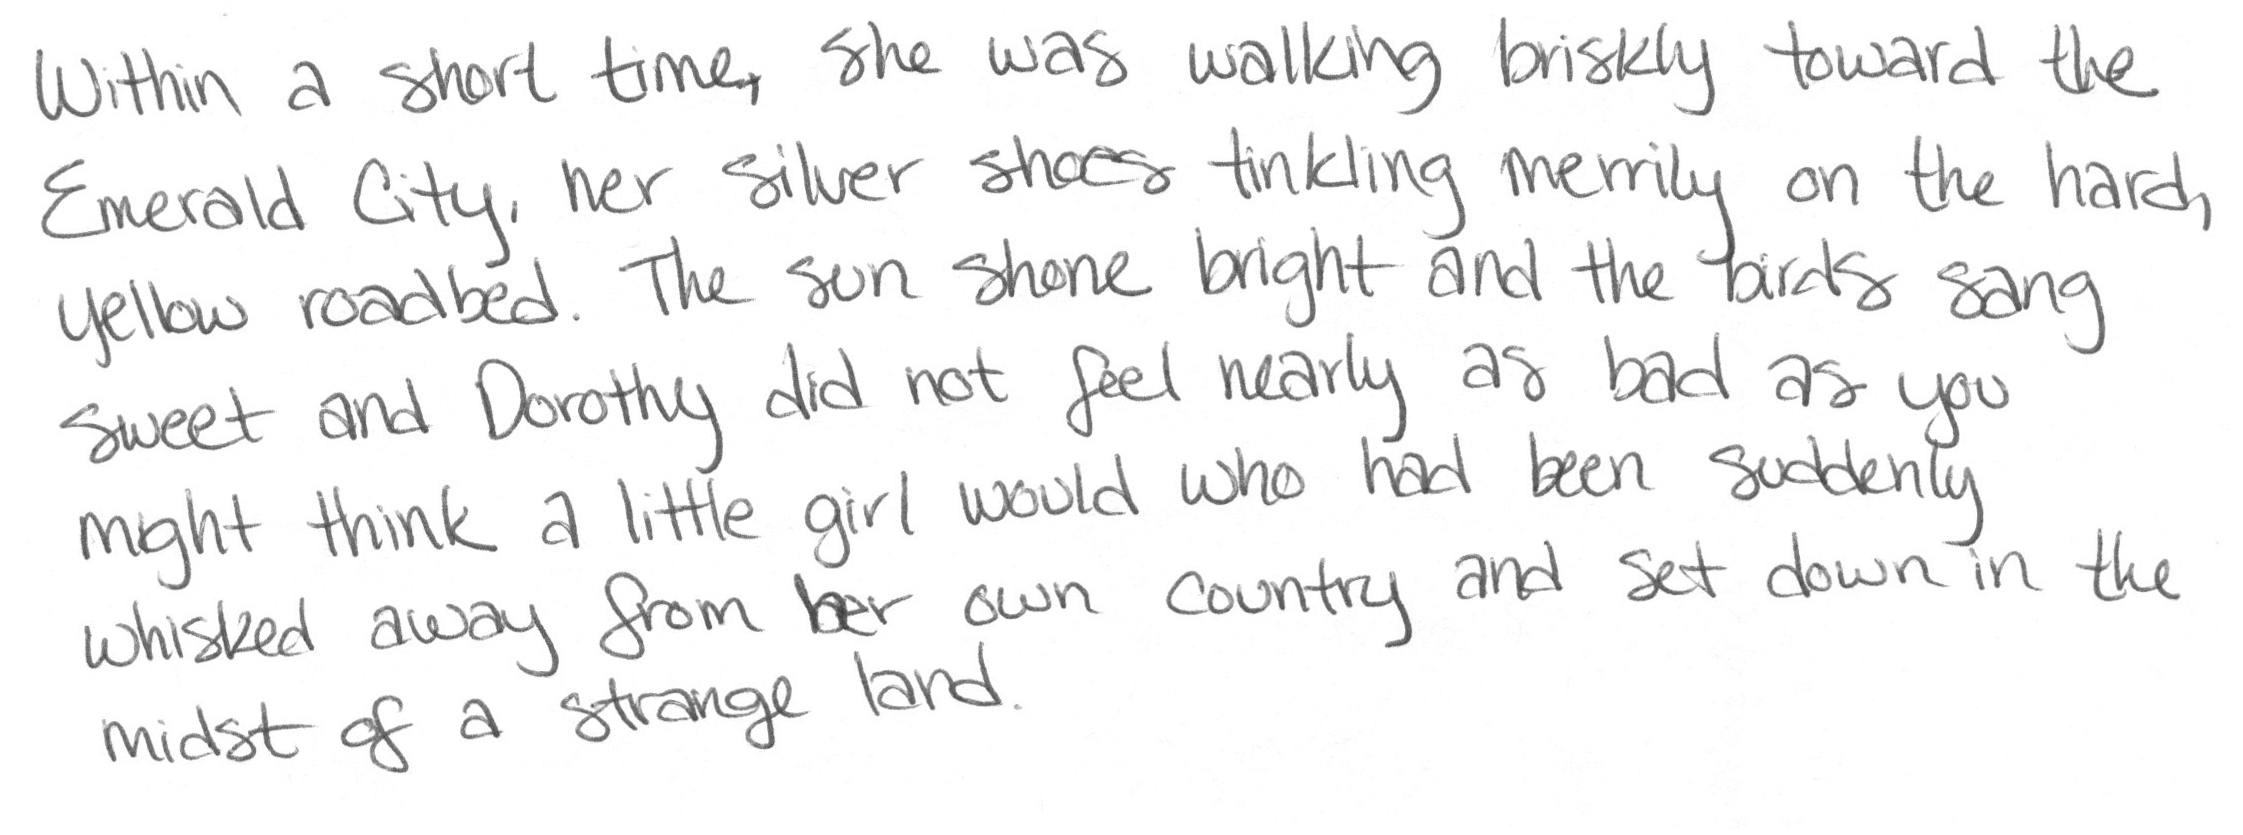 Within a short time, she was walking briskly toward the
Emerald City, her silver shoes tinkling merrily on the hard,
yellow roadbed. The sun shone bright and the birds sang
sweet and Dorothy did not feel nearly as bad as you
might think a little girl would who had been suddenly
whisked away from her own country and set down in the
midst of a strange land.